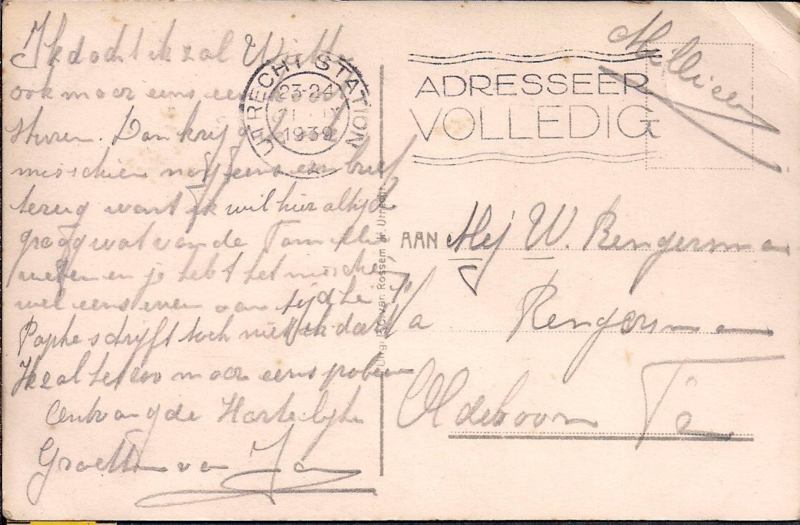 Ik dacht ik zal Wietske
ook maar eens een
sturen. Dan krijg ik
misschien nog eens een brief
terug want ik wil hier altijd
graag wat van de Familie
weten en je hebt het misschien
wel eens even aan tijd he
Paphe schrijft toch niet ik dacht
Ik zal het zoo maar eens proberen
Ontvang de Hartelijke
Groeten van Jan
UTRECHT STATION
23-24
1 IX
1939
ADRESSEER
VOLLEDIG
Militair
AAN Mej W. Rengersma
p/a Rengersma
Oldeboorn
Uitg. van Rossem Jr. Utrecht